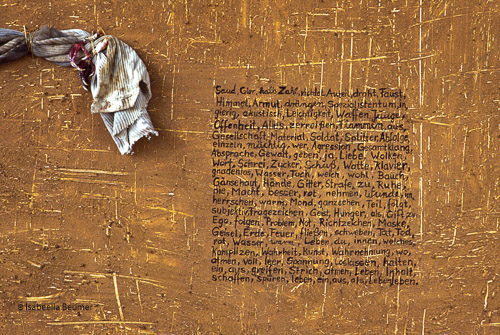 Seud, Gier, heile Zahl, richtet, Auwei, droht, Faust,
Himmel, Armut, drängen, Spezialistentum, in
gierig, akustisch, Leichtigkeit, Waffen, Träger,
Offenheit, Alles, zerreißen, stumm, aus,
Gesellschaft, Material, Soldat, Splitter, Abfolge
einzeln, mächtig, wer, Agression, Gesamtklang,
Absprache, Gewalt, geben, ja, Liebe, Wolken,
Wort, Schrei, Zucker, Schuß, Watte, Klavier,
gnadenlos, Wasser, Tuch, weich, wohl, Bauch,
Gänsehaut, Hände, Gitter, Straße, zu, Ruhe,
nie, Macht, besser, rot, nehmen, Wunde, im,
herrschen, warm, Mond, ganzchen, Teil, folgt,
subjektiv, Fragezeichen, Geist, Hunger, als, Gift, zu
Ego, folgen, Problem, Not, Richtzeichen, Maske,
Geisel, Erde, Feuer, fließen, schweben, Tat, Tod,
rot, Wasser, wenn, Leben, du, innen, welches,
Komplizen, Wahrheit, Kunst, Wahrnehmung, wo,
atmen, voll, leer, Spannung, Loslassen, halten,
ein, aus, greifen, Strich, atmen, Leben, Inhalt,
schaffen, spüren, leben, ein, aus, als, Lebenleben.
© Isabeella Beumer